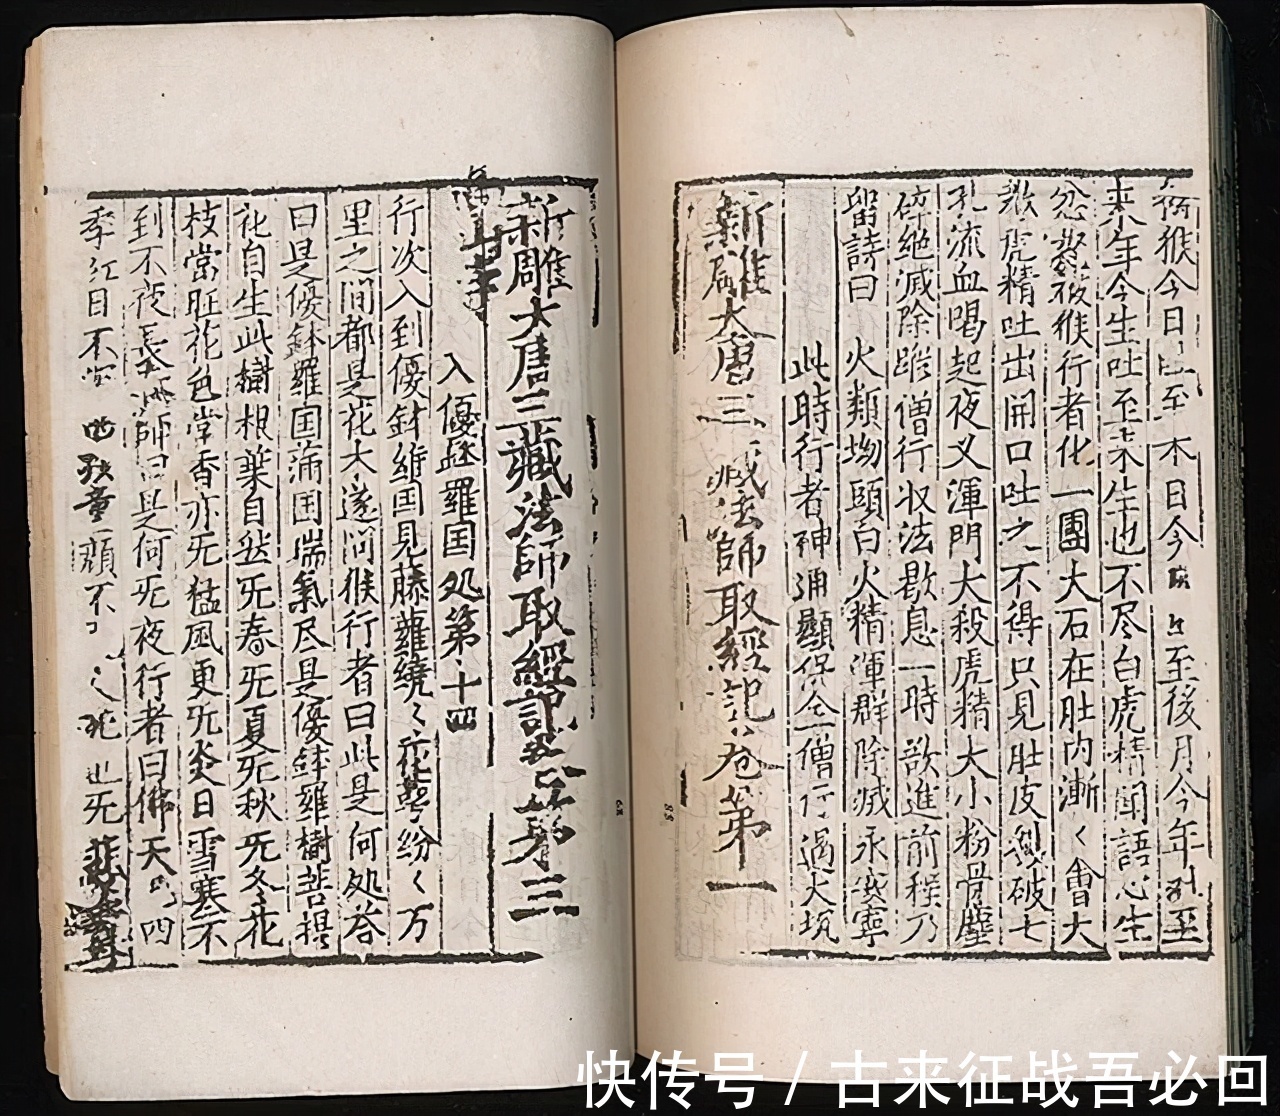 猴今日至木日今至後月今年至
來年今生吐至未生也不尽白虎精聞語心生
忿怒被猴行者化一團大石在肚内漸〻會大
教虎精吐出開口吐之不得只見肚皮破七
孔流血喝起夜叉渾門大殺虎精大小粉骨塵
碎絶滅除蹤僧行收法歇息一時欲進前程乃
留詩曰 火類坳頭白火精渾群除滅永安寧
此時行者神通顯保全僧行過大坑
新雕大唐三藏法師取經記卷第一
新雕大唐三藏法師取經記卷第三
入優鉢羅国処第十四
行次入到優鉢羅国見藤蘿繞〻花萼紛〻万
里之間都是花木遂问猴行者曰此是何処荅
曰是優鉢羅国滿国瑞氣尽是優鉢羅樹菩提
花自生此樹根葉自然旡春旡夏旡秋旡冬花
枝常旺花色常香亦旡猛風更旡炎日雪寒不
到不夜長春師曰是何旡夜行者曰佛天四
季紅日不西孩童顔不也旡悲
快传号 / 古来征战吾必回